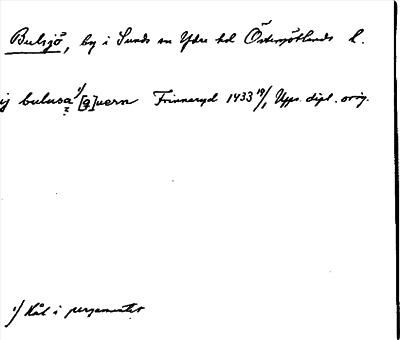 Bulsjö, by i Sunds sn Ydre hd Östergötlands l.
ij bulusa 1) [q]uern Frinnaryd 1433 19/1 Upps. dipl. orig.
1) Hål i pergamentet